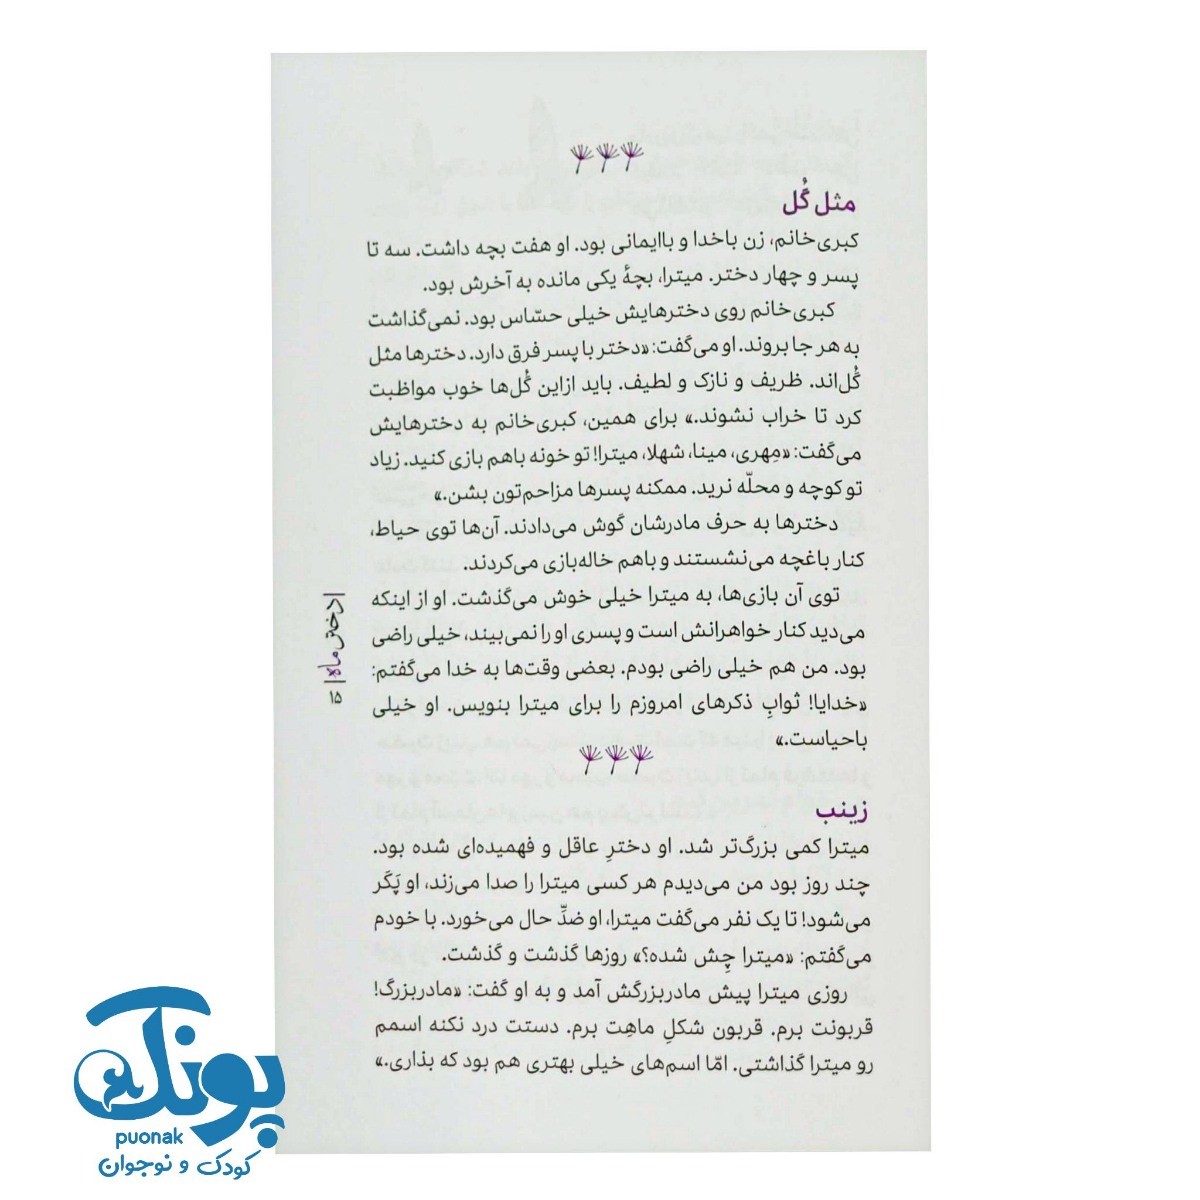 مثل گُل
کبری‌خانم، زن باخدا و باایمانی بود. او هفت بچه داشت. سه تا
پسر و چهار دختر. میترا، بچهٔ یکی مانده به آخرش بود.
کبری‌خانم روی دخترهایش خیلی حسّاس بود. نمی‌گذاشت
به هر جا بروند. او می‌گفت: «دختر با پسر فرق دارد. دخترها مثل
گُل‌اند. ظریف و نازک و لطیف. باید ازاین گُل‌ها خوب مواظبت
کرد تا خراب نشوند.» برای همین، کبری‌خانم به دخترهایش
می‌گفت: «مِهری، مینا، شهلا، میترا! تو خونه باهم بازی کنید. زیاد
تو کوچه و محلّه نرید. ممکنه پسرها مزاحم‌تون بشن.»
دخترها به حرف مادرشان گوش می‌دادند. آن‌ها توی حیاط،
کنار باغچه می‌نشستند و باهم خاله‌بازی می‌کردند.
توی آن بازی‌ها، به میترا خیلی خوش می‌گذشت. او از اینکه
می‌دید کنار خواهرانش است و پسری او را نمی‌بیند، خیلی راضی
بود. من هم خیلی راضی بودم. بعضی وقت‌ها به خدا می‌گفتم:
«خدایا! ثوابِ ذکرهای امروزم را برای میترا بنویس. او خیلی
باحیاست.»
زینب
میترا کمی بزرگ‌تر شد. او دخترِ عاقل و فهمیده‌ای شده بود.
چند روز بود من می‌دیدم هر کسی میترا را صدا می‌زند، او پَکَر
می‌شود! تا یک نفر می‌گفت میترا، او ضدِّ حال می‌خورد. با خودم
می‌گفتم: «میترا چِش شده؟» روزها گذشت و گذشت.
روزی میترا پیش مادربزرگش آمد و به او گفت: «مادربزرگ!
قربونت برم. قربون شکلِ ماهِت برم. دستت درد نکنه اسمم
رو میترا گذاشتی. امّا اسم‌های خیلی بهتری هم بود که بذاری.»
|دختر ماه|
۱۵
پونک
puonak
کودک و نوجوان